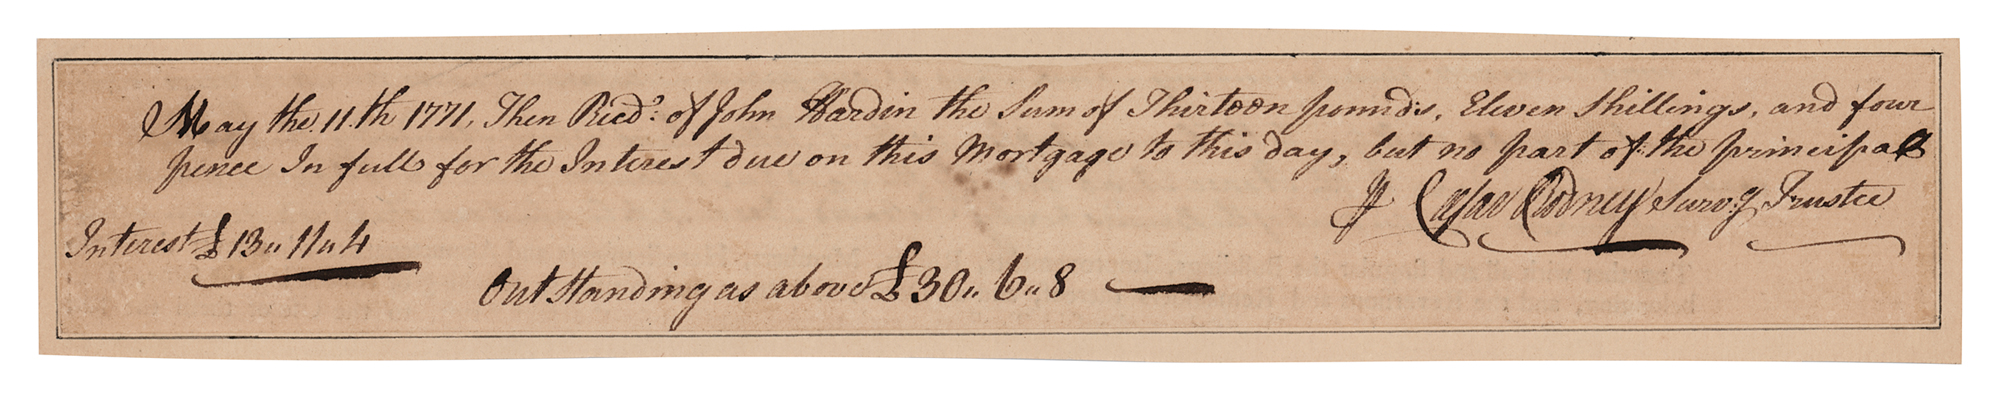 May the 11.th 1771, Then Recd. of John Hardin the Sum of Thirteen pounds, Eleven Shillings, and four
pence In full for the Interest due on this Mortgage to this day, but no part of the principal
Caesar Rodney Surv.g Trustee
Interest £13" 11" 4
Outstanding as above £30" 6" 8